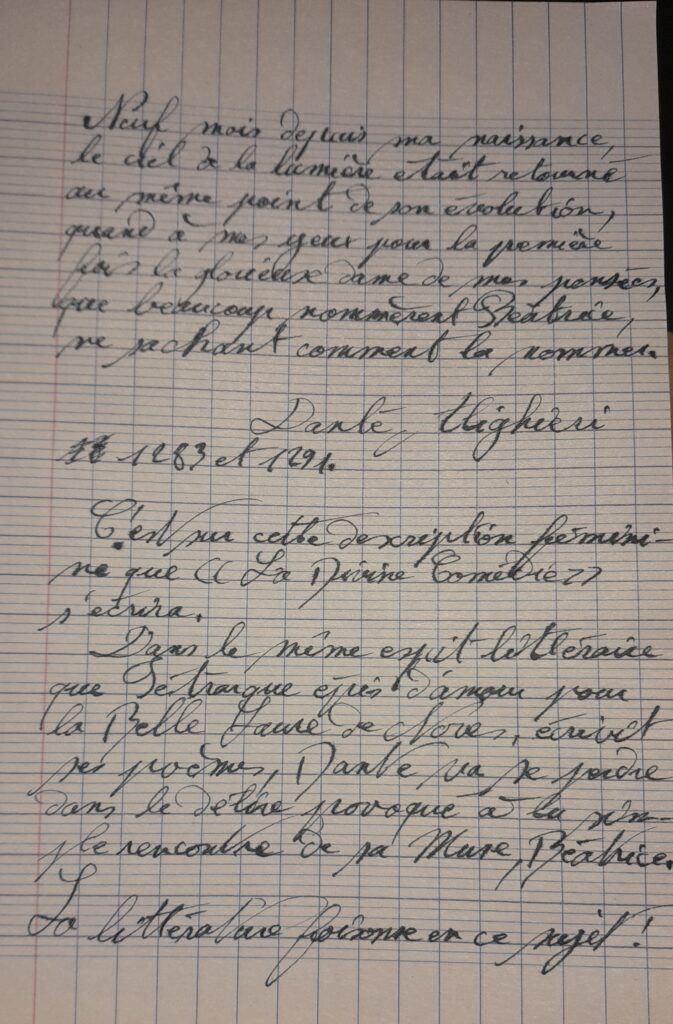 Neuf mois depuis ma naissance,
le ciel de la lumière était retourné
au même point de son évolution,
quand à mes yeux pour la première
fois la glorieuse dame de mes pensées,
que beaucoup nommèrent Béatrice,
ne sachant comment la nommer.
Dante, Alighieri
1283 et 1291.
C'est sur cette description fémini-
ne que << La Divine Comédie >>
s'écrira.
Dans le même esprit littéraire
que Pétrarque épris d'amour pour
la Belle Laure de Noves, écrivit
ses poèmes, Dante va se perdre
dans le délire provoqué à la sim-
ple rencontre de sa Muse, Béatrice.
La littérature foisonne en ce sujet !